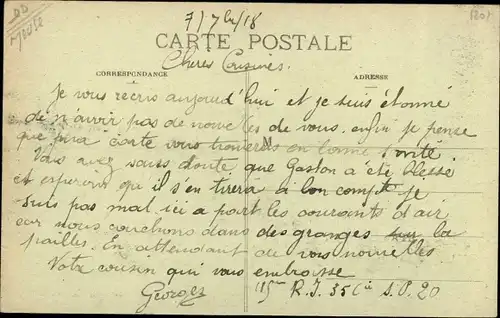 Meuse
7/7bre/18
CARTE POSTALE
Chères Cousines.
CORRESPONDANCE
ADRESSE
Je vous recris aujourd'hui et je suis étonné
de n'avoir pas de nouvelles de vous. enfin je pense
que ma carte vous trouvera en bonne santé.
Vous avez sans doute que Gaston a été blessé
et esperons qu'il s'en tirera à bon compte je
suis pas mal ici a part les courants d'air
car nous couchons dans des granges sur la
pailles. En attendant de vos nouvelles
Votre cousin qui vous embrasse
Georges 115em R.I. 35 Cie S.P. 20